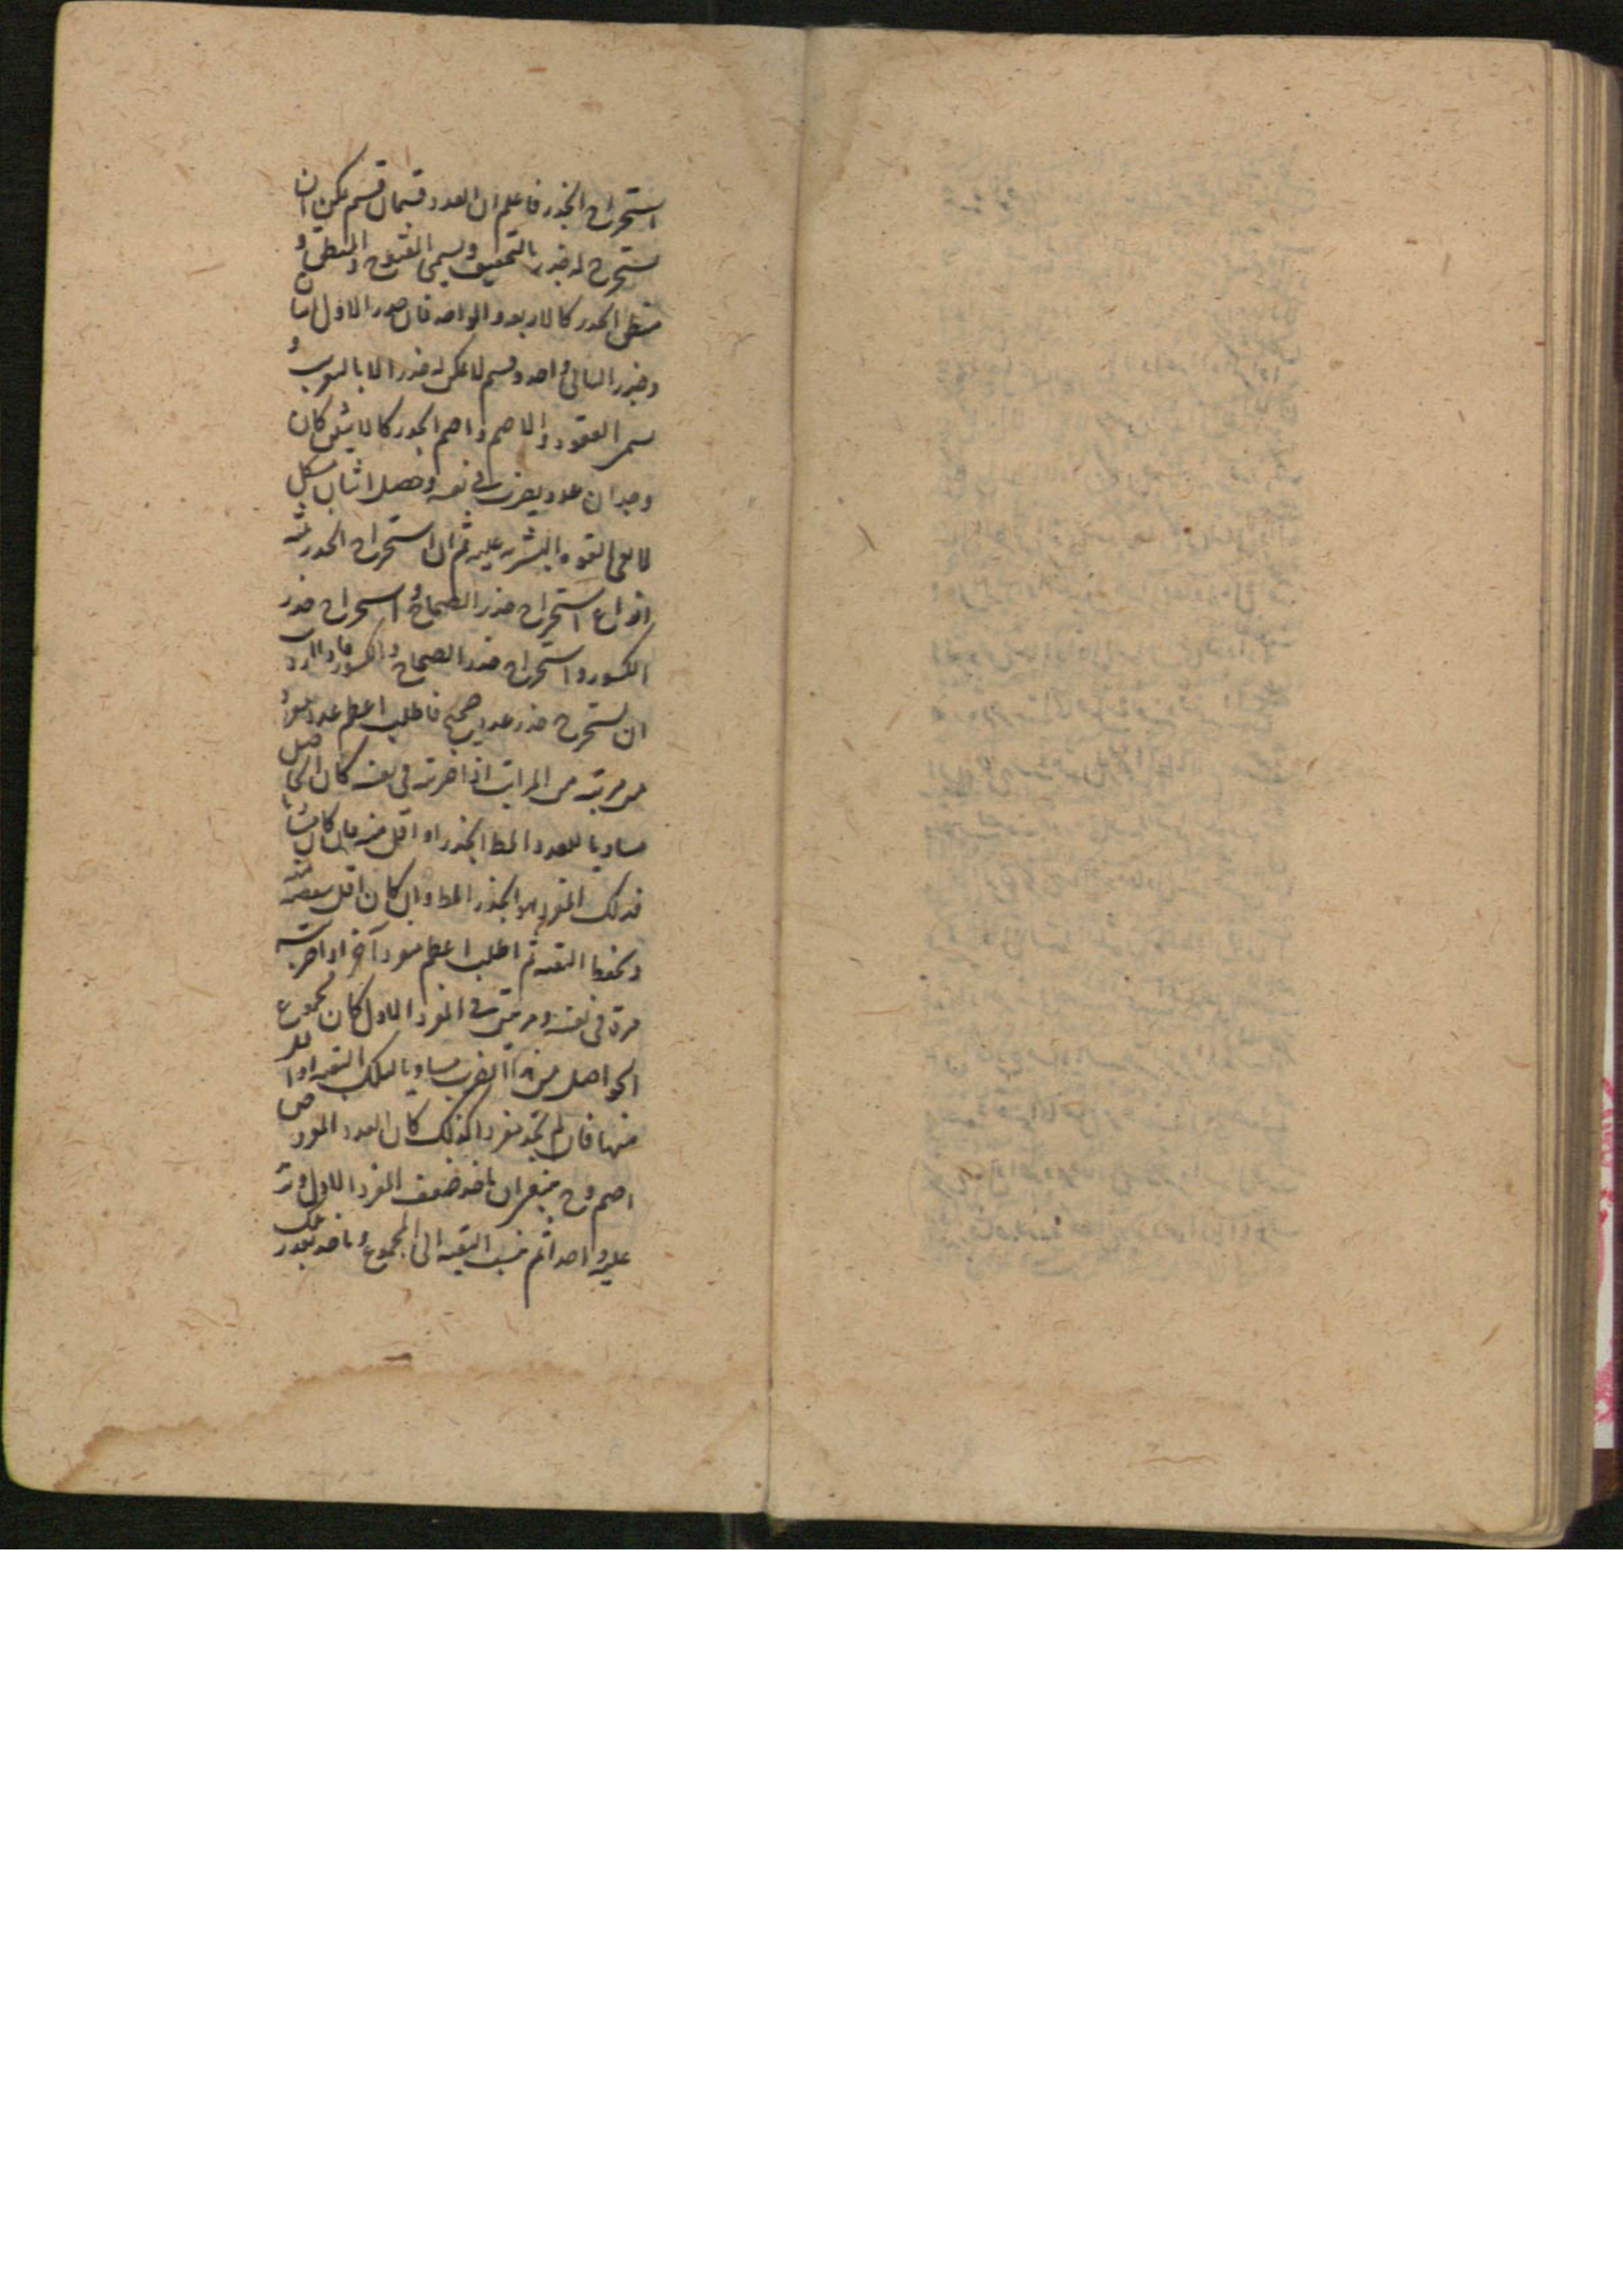 استخراج الجذر فاعلم ان العدد قسمان قسم يمكن ان
يستخرج له جذر بالتحقيق ويسمى المفتوح والمنطق و
منطق الجذر كالاربعة والواحد فان جذر الاول اثنا
وجذر الثاني واحد وقسم لا يمكن له جذر الا بالتقريب و
يسمى المعقود والاصم واصم الجذر كالاثنين فان
وجدان عدد يضرب في نفسه وحصل اثنان مشكل
لا تفى القوة البشرية عليه ثم ان استخراج الجذر ثلثة
انواع استخراج جذر الصحاح و استخراج جذر
الكسور و استخراج جذر الصحاح والكسور فاذا اردت
ان تستخرج جذر عدد صحيح فاطلب اعظم عدد مفرد
من مرتبة من المراتب اذا ضربته في نفسه كان الحاصل
مساويا للعدد المط الجذر او اقل منه فان كان مساويا
فذلك المفرد هو الجذر المط وان كان اقل
ونحفظ البقية ثم اطلب اعظم مفرد آخر اذا ضربته
مرة في نفسه ومرتين في المفرد الاول كان مجموع
الحواصل من الضرب مساويا لتلك البقية او اقل
منها فان لم تجد مفردا كذلك كان العدد المفروض
اصم وح ينبغى ان تاخذ ضعف المفرد الاول وتزيد
عليه واحدا ثم تنسب البقية الى المجموع وتاخذ بقدر تلك